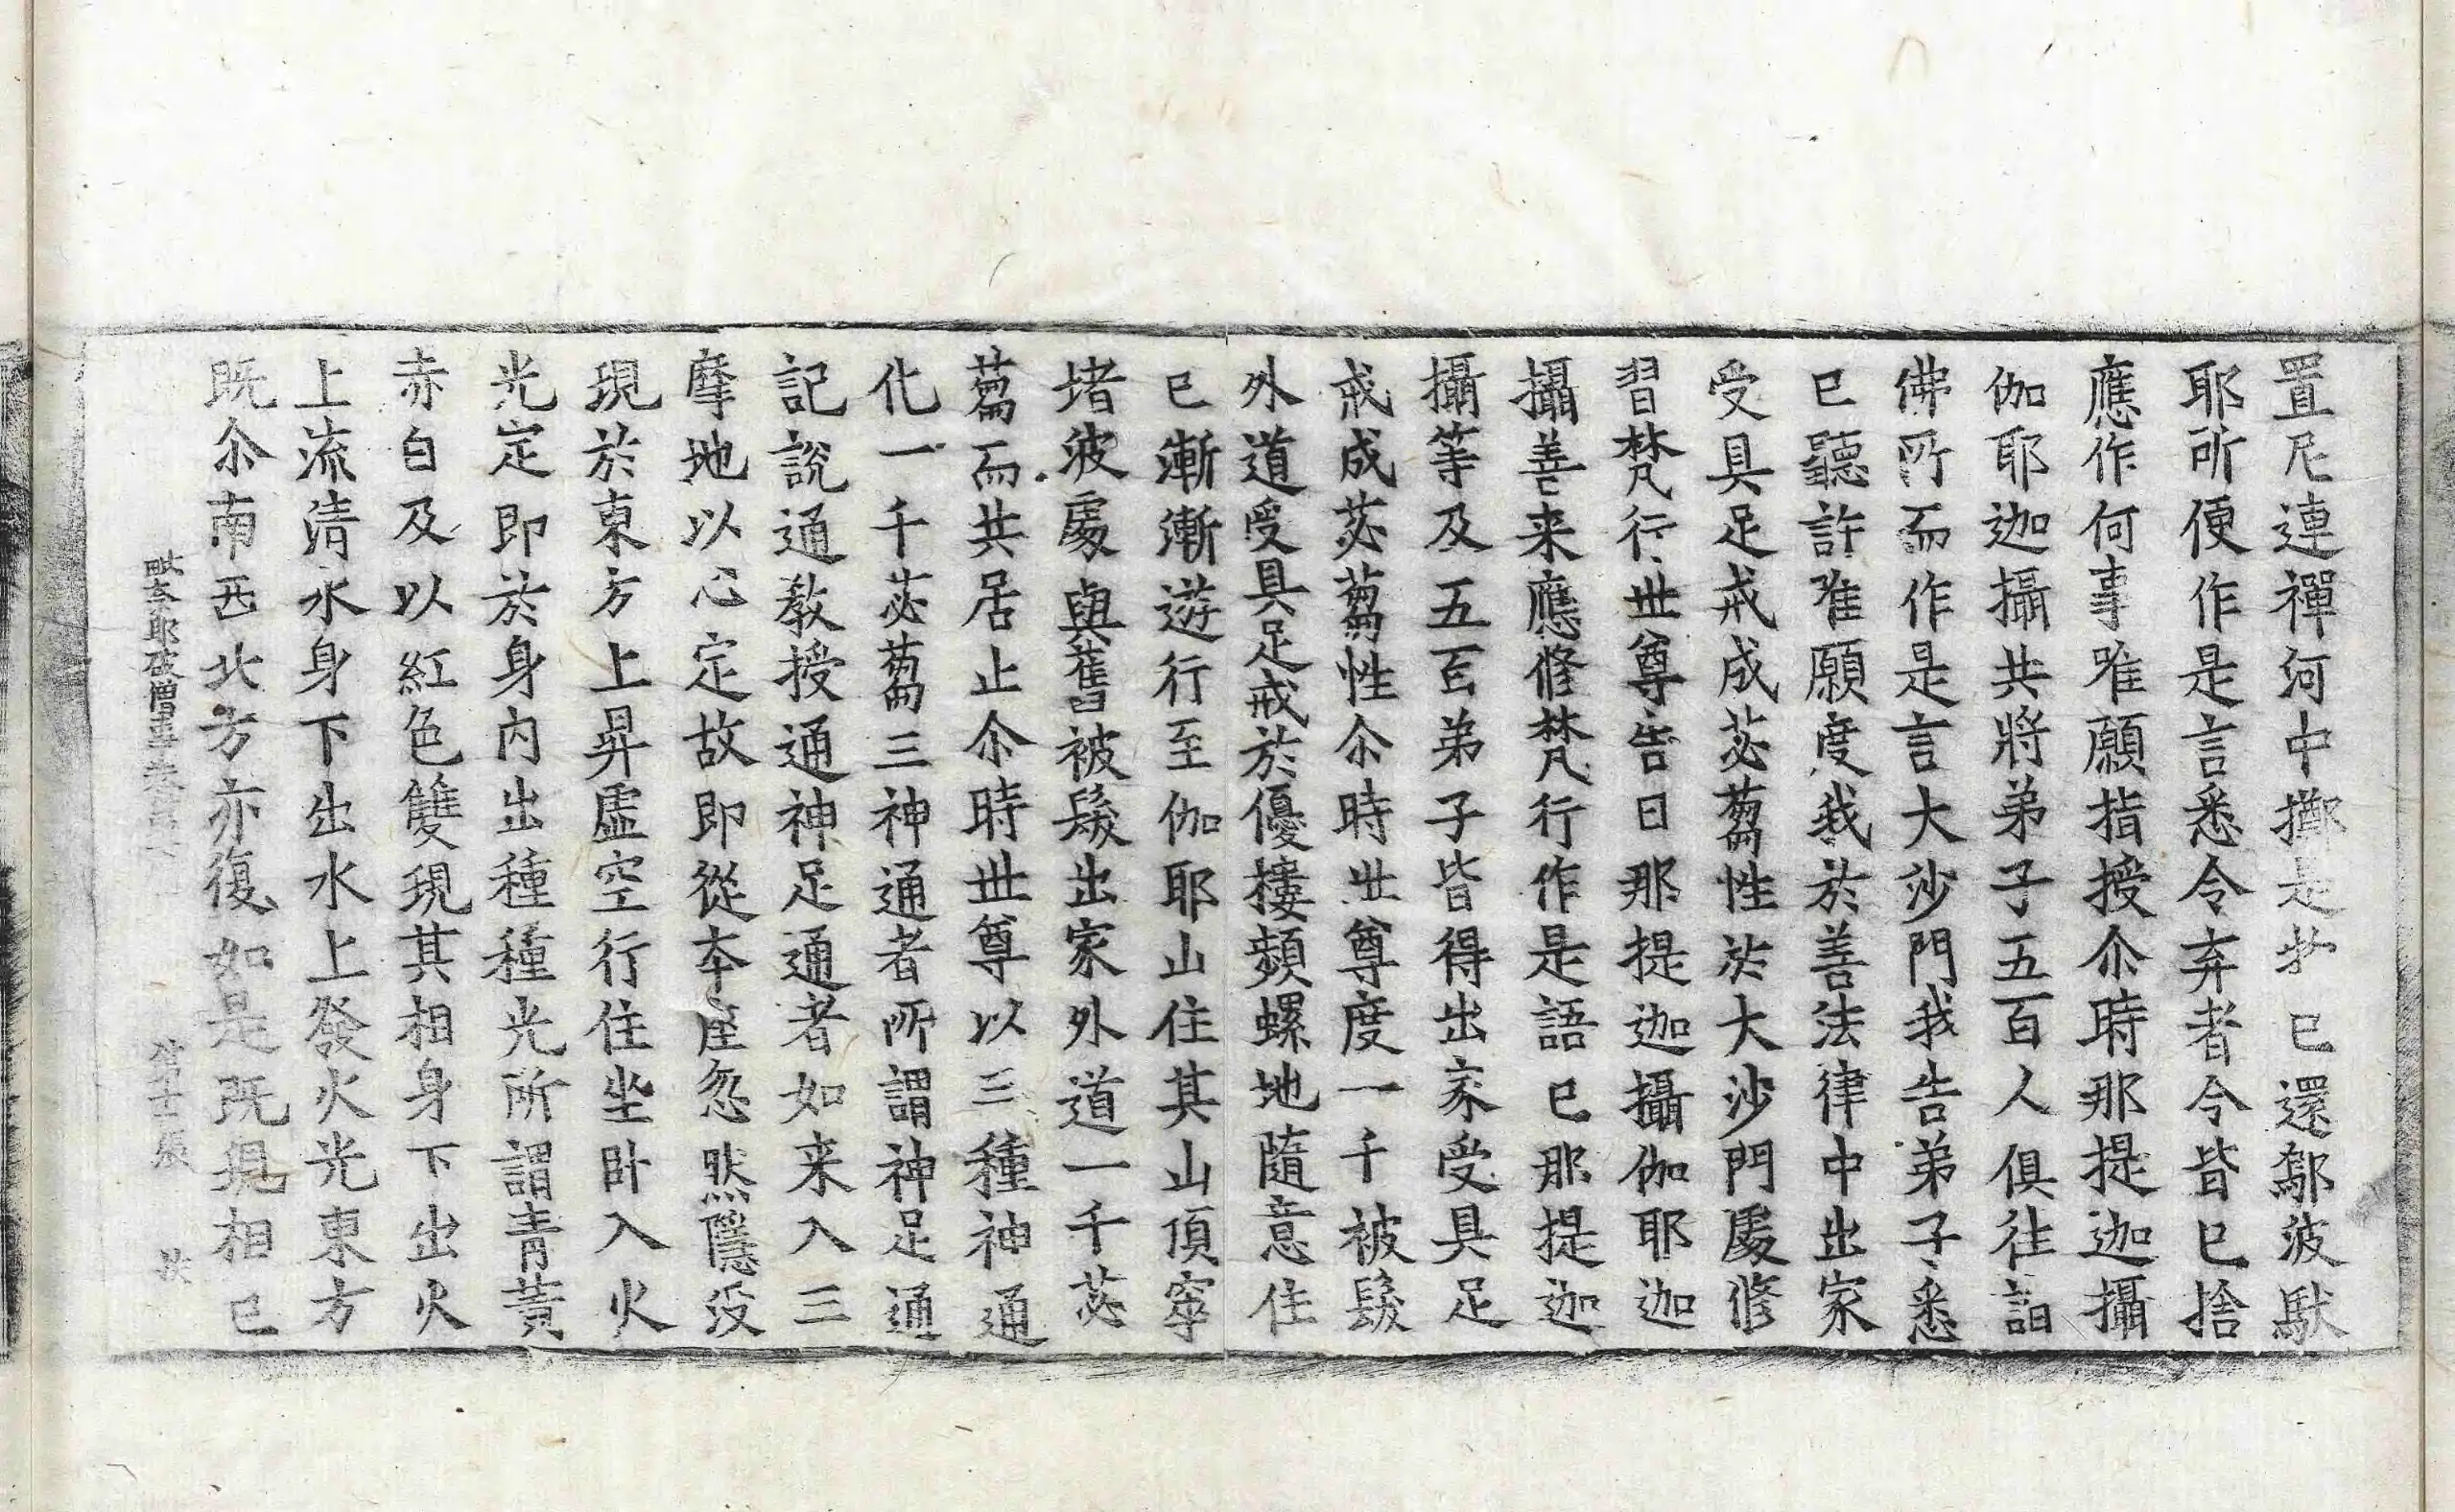 置尼連禪河中擲走艸已還鄔波馱
耶所便作是言悉令弃者今皆已捨
應作何事唯願指授尒時那提迦攝
伽耶迦攝共將弟子五百人俱往詣
佛所而作是言大沙門我告弟子悉
已聽許唯願度我於善法律中出家
受具足戒成苾蒭性於大沙門處修
習梵行世尊告曰那提迦攝伽耶迦
攝善来應修梵行作是語已那提迦
攝等及五百弟子皆得出家受具足
戒成苾蒭性尒時世尊度一千被髮
外道受具足戒於優樓頻螺地隨意住
已漸漸遊行至伽耶山住其山頂窣
堵波處與舊被髮出家外道一千苾
蒭而共居止尒時世尊以三種神通
化一千苾蒭三神通者所謂神足通
記說通教授通神足通者如来入三
摩地以心定故即從本座忽然隱沒
現於東方上昇虛空行住坐臥入火
光定即於身內出種種光所謂青黃
赤白及以紅色雙現其相身下出火
上流清水身下出水上發火光東方
既尒南西北方亦復如是既現相已
毗奈耶破僧事卷第 第十二張